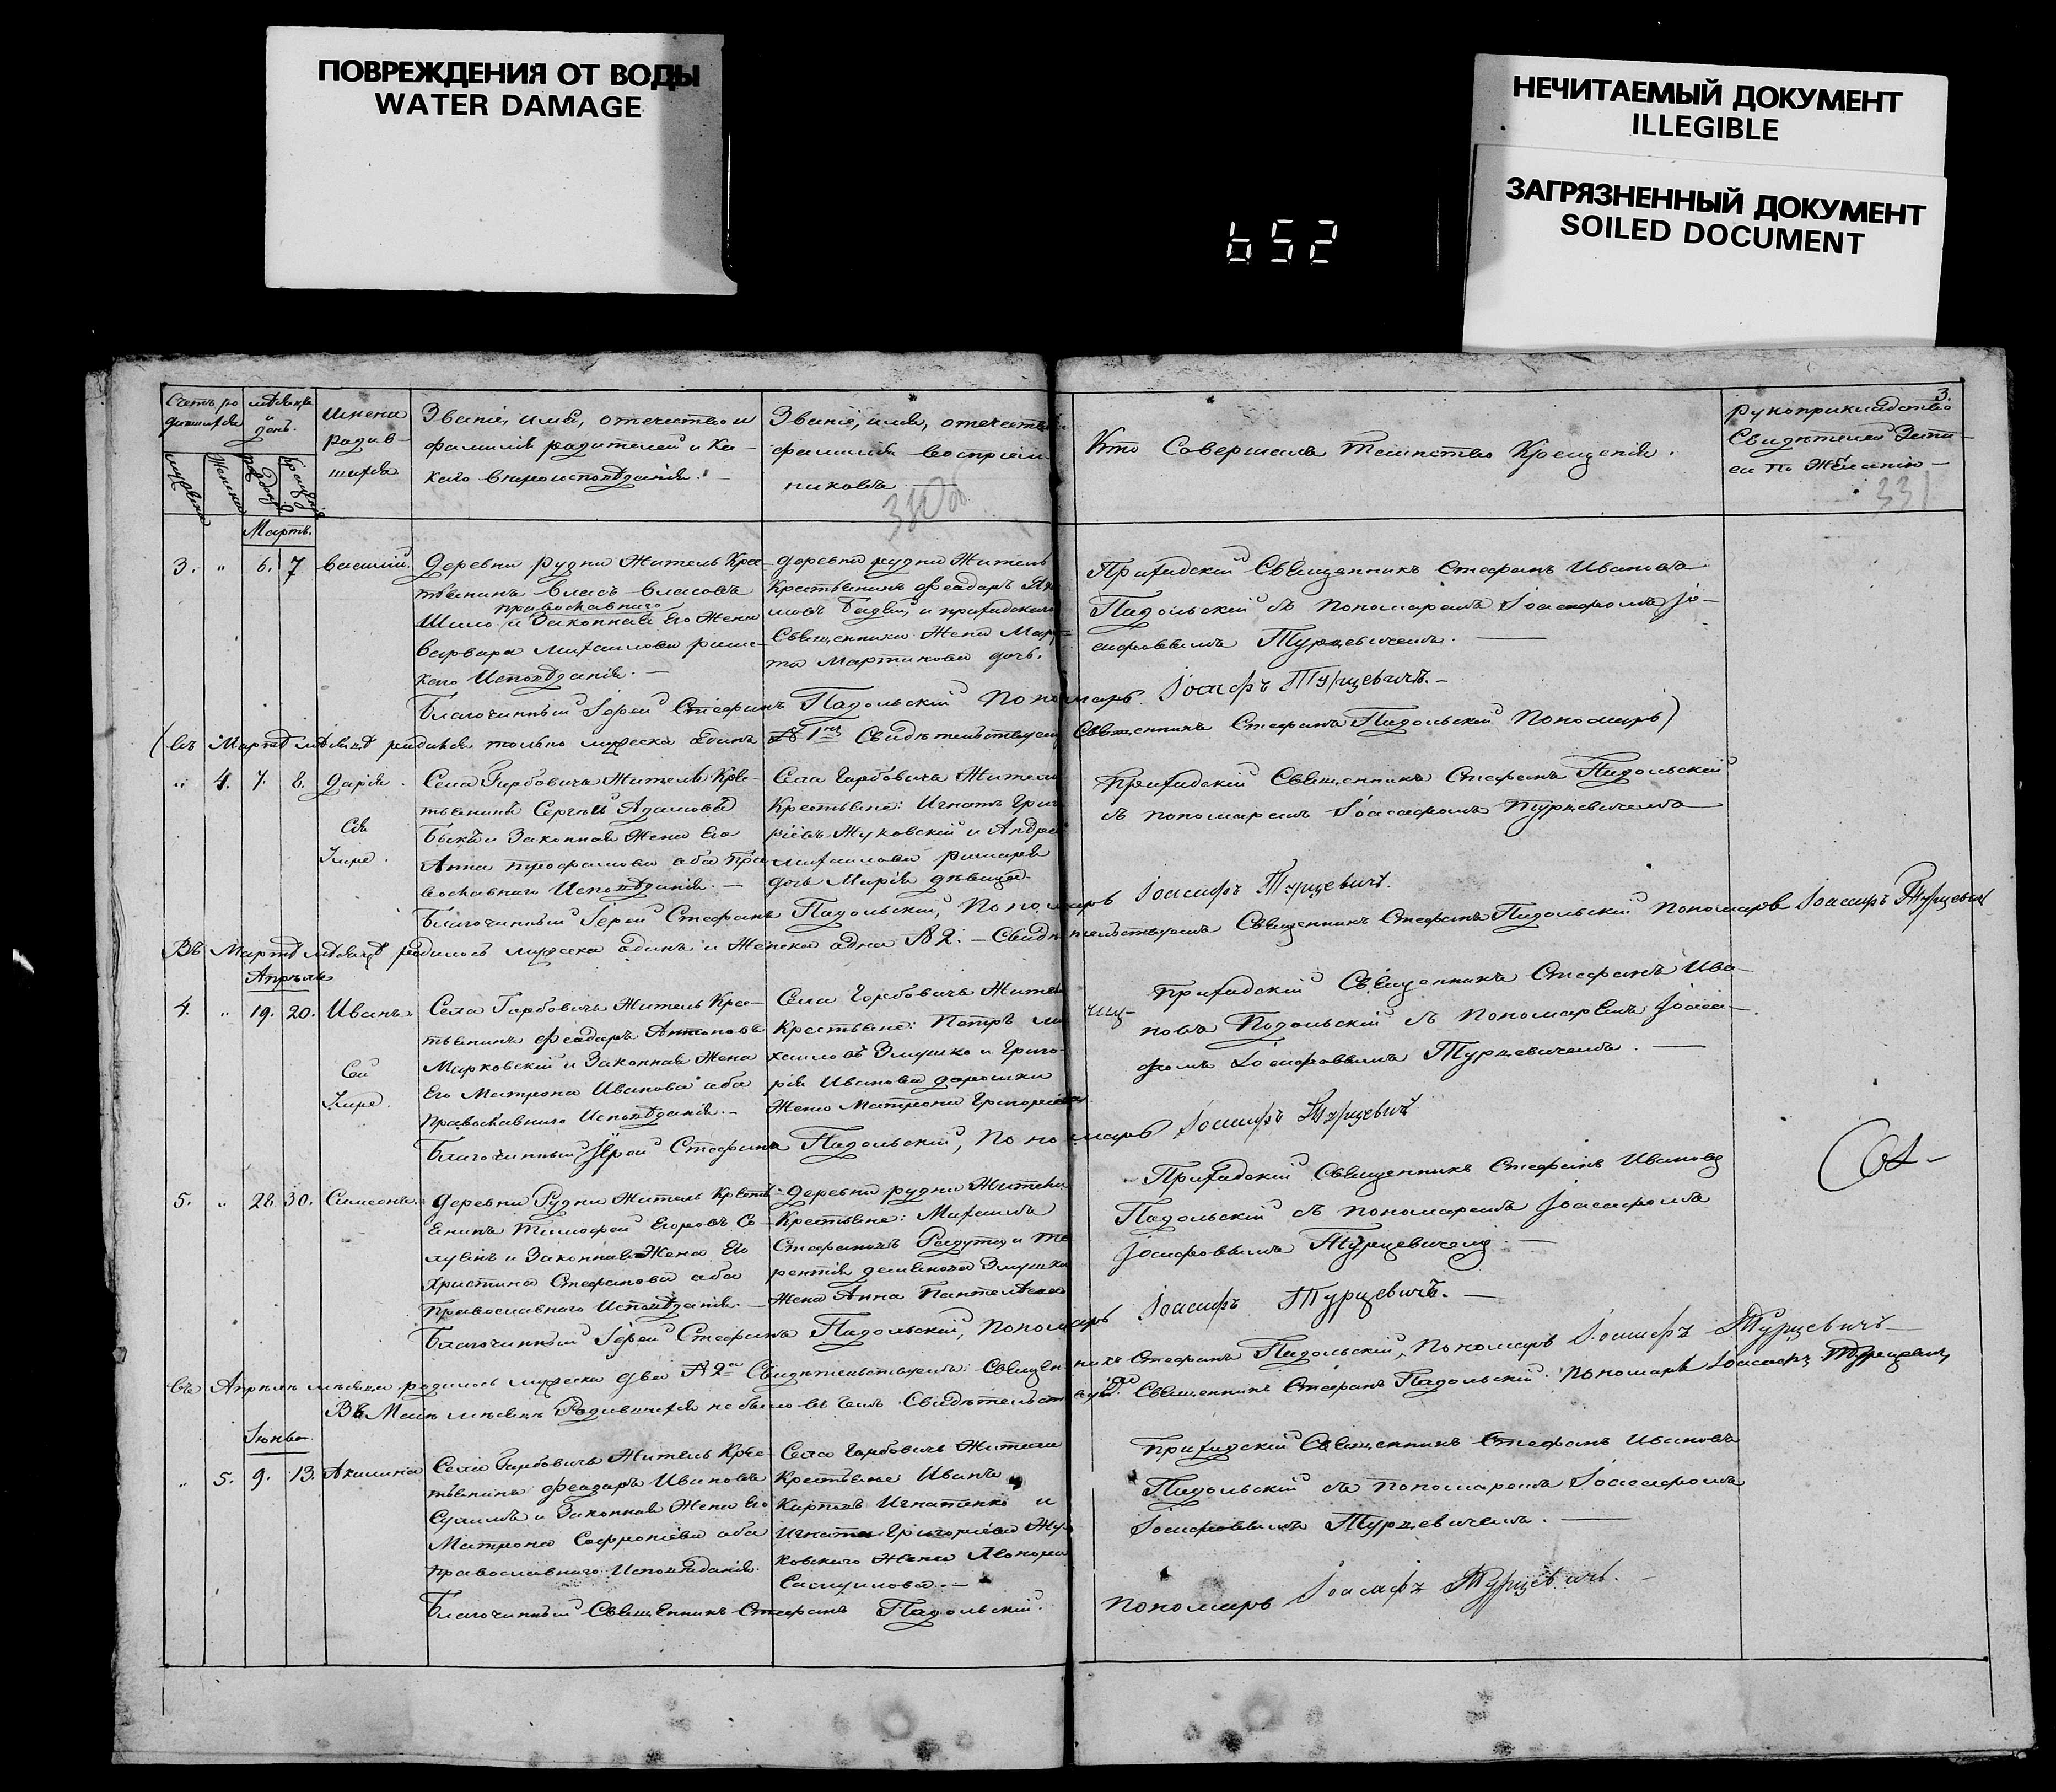 ПОВРЕЖДЕНИЯ ОТ ВОДЫ
WATER DAMAGE
НЕЧИТАЕМЫЙ ДОКУМЕНТ
ILLEGIBLE
ЗАГРЯЗНЕННЫЙ ДОКУМЕНТ
SOILED DOCUMENT
652
3.
Званіе, имя, отечество и
фамилія родителей и ка-
каго вѣроисповѣданія.
Званіе, имя, отечество
фамилія воспріем-
никовъ
Кто Совершалъ Таинство Крещенія.
331
Мартъ.
3. " 6. 7 Василій.
Деревни Рудни Житель Кре-
стьянинъ Власъ Власовъ
православнаго
Шило и Законная Его Жена
Варвара Михаилова римс-
каго Исповѣданія. —
деревни рудни Житель
Крестьянинъ Феодоръ
и приходскаго
Священника Жена Мар-
та Мартинова дочь.
Приходскій Священникъ Стефанъ Ивановъ
Падольскій съ Пономаремъ Іоасафомъ Іо-
сифовымъ Турцевичемъ. —
Благочинный Іерей Стефанъ Падольскій Пономарь Іоасафъ Турцевичъ. —
Священникъ Стефанъ Падольскій Пономарь)
" 4. 7. 8. Дарія.
Села Горбовичъ Житель Кре-
стьянинъ Сергѣй Адамовъ
Быкъ и Законная Жена Его
Анна Трофимова оба Пра-
вославнаго Исповѣданія. —
Села Горбовича Жители
Крестьяне: Игнатъ Григо
ріевъ Жуковскій и Андрея
Михаилова
дочь Марія дѣвица.
Приходскій Священникъ Стефанъ Падольскій
съ пономаремъ Іоасафомъ Турцевичемъ
Благочинный Іерей Стефанъ Падольскій, Пономарь Іоасафъ Турцевичъ.
Въ Мартѣ мѣсяцѣ родилось мужеска одинъ и Женска одна № 2. — Свидѣтельствуемъ Священникъ Стефанъ Падольскій Пономарь Іоасафъ Турцевичъ
Апрѣль
4. " 19. 20. Иванъ.
Села Горбовичъ Житель Кре-
стьянинъ Феодоръ Антоновъ
Марковскій и Законная Жена
Его Матрона Иванова оба
Православнаго Исповѣданія. —
Села Горбовичъ Жители
Крестьяне: Петръ Ми
хаиловъ Змушко и Григо-
рія Иванова
Жена Матрона Григориева
Приходскій Священникъ Стефанъ Ива-
новъ Подольскій съ Пономаремъ Іоаса-
фомъ Іосифовымъ Турцевичемъ. —
Благочинный Іерей Стефанъ Падольскій, Пономарь Іоасафъ Турцевичъ
5. " 28. 30. Симеонъ.
Деревни Рудни Житель Кресть-
янинъ Тимофей Егоровъ
и Законная Жена Его
Христина Стефанова оба
Православнаго Исповѣданія. —
Деревни рудни Жители
Крестьяне: Михаилъ
Стефановъ и Те
рентія Змушка
Жена Анна
Приходскій Священникъ Стефанъ Ивановъ
Падольскій съ пономаремъ Іоасафомъ
Іосифовымъ Турцевичемъ. —
Благочинный Іерей Стефанъ Падольскій, Пономарь Іоасафъ Турцевичъ. —
Въ Апрѣлѣ мѣсяцѣ родилось мужеска два № 2 Свидѣтельствуемъ: Священникъ Стефанъ Падольскій, Пономарь Іоасафъ Турцевичъ
Въ Маѣ мѣсяцѣ Родившихся не было въ чемъ Свидѣтельствуемъ. Священникъ Стефанъ Падольскій. Пономарь Іоасафъ Турцевичъ
Іюнь
" 5. 9. 13. Акилина
Села Горбовичъ Житель Кре-
стьянинъ Феодоръ Ивановъ
и Законная Жена Его
Матрона Софроніева оба
православнаго Исповѣданія.
Села Горбовичъ Жители
Крестьяне Иванъ
Карповъ Игнатенко и
Игната Григоріева Жу-
ковскаго Жена
Самуилова. —
Приходскій Священникъ Стефанъ Ивановъ
Падольскій съ пономаремъ Іоасафомъ
Іосифовымъ Турцевичемъ. —
Благочинный Священникъ Стефанъ Падольскій.
Пономарь Іоасафъ Турцевичъ. —